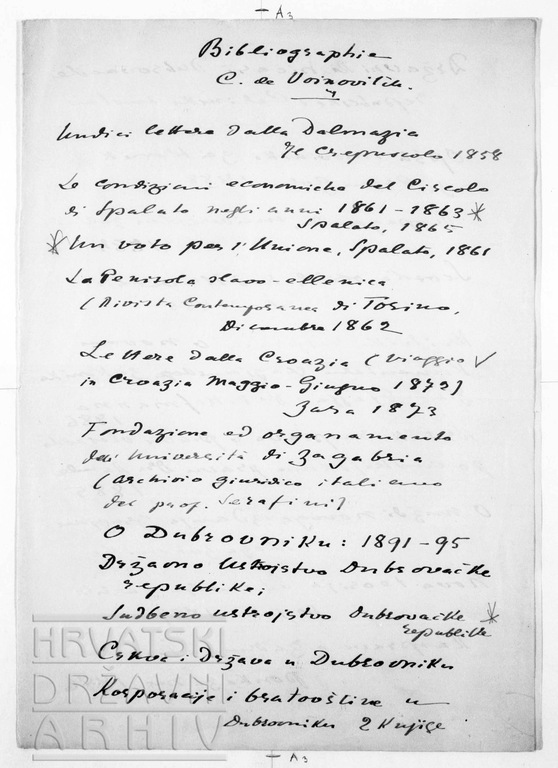 A3
Bibliographie
C. de Voinovitch.
Undici lettere dalla Dalmazia
Il Crepuscolo 1858
Le condizioni economiche del Circolo
di Spalato negli anni 1861-1863 *
Spalato, 1865
* Un voto per l'Unione, Spalato, 1861
La Penisola slavo-ellenica
(Rivista Contemporanea di Torino,
Dicembre 1862
Lettere dalla Croazia (Viaggio √
in Croazia Maggio-Giugno 1872)
Zara 1873
Fondazione ed organamento
dell'Università di Zagabria
(Archivio giuridico italiano
del prof. Serafini)
O Dubrovniku: 1891-95
Državno Ustrojstvo Dubrovačke
republike;
Sudbeno ustrojstvo Dubrovačke *
republike
Crkva i Država u Dubrovniku
Korporacije i bratovštine u
Dubrovniku 2 Knjige
HRVATSKI
DRŽAVNI
ARHIV
A3